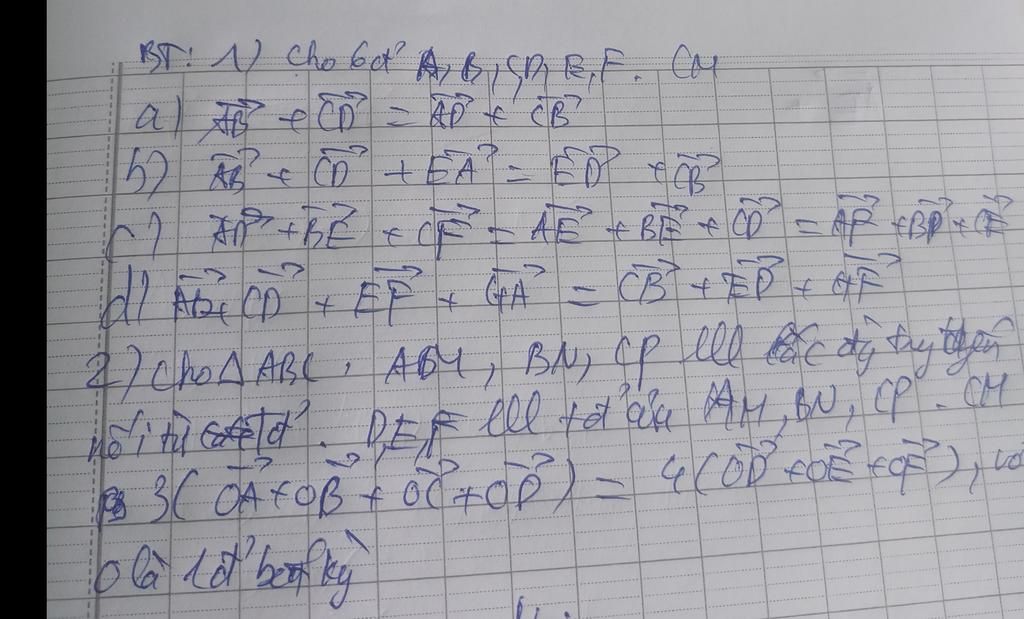 BT: 1) Cho 6 đ' A, B, C, D, E, F. CM
a) AB + CD = AD + CB
b) AB + CD + EA = ED + CB
c) AD + BE + CF = AE + BF + CD = AF + BD + CE
d) AB + CD + EF + GA = CB + ED + GF
2) Cho Δ ABC, AM, BN, CP lll các
nối từ đ'. D, E, F lll tđ' của AM, BN, CP. CM
3(OA + OB + OC + OD) = 4(OD + OE + OF), với
O là 1 đ' bất kỳ